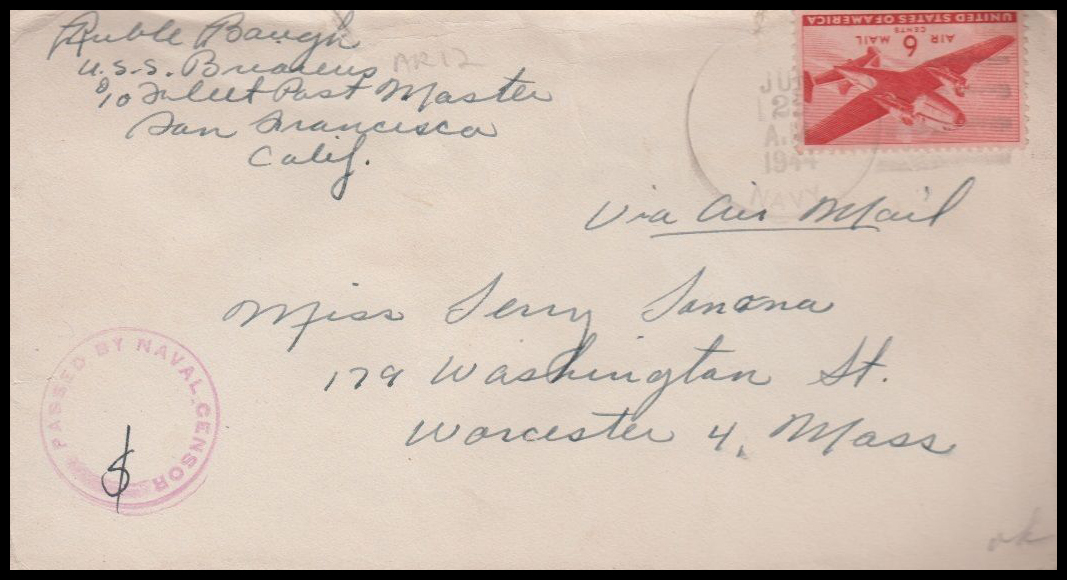 Ruble Baugh
U.S.S. Briareus AR12
c/o Fleet Post Master
San Francisco
Calif.
UNITED STATES OF AMERICA
6 CENTS
AIR MAIL
A.M.
1944
NAVY
Via Air Mail
Miss Terry
179 Washington St.
Worcester 4, Mass
PASSED BY NAVAL CENSOR
ok